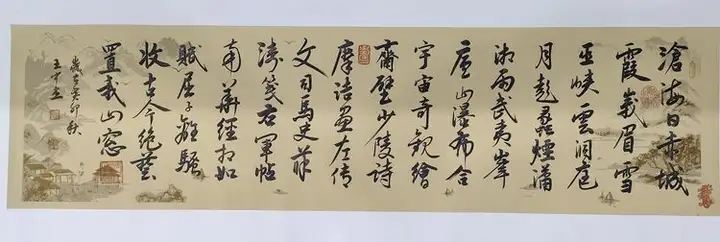 滄海日赤城
霞峩眉雪
巫峽雲洞庭
月彭蠡煙瀟
湘雨武夷峯
廬山瀑布合
宇宙奇觀繪
齋壁少陵詩
摩詰畫左傳
文司馬史薛
濤箋右軍帖
南華經相如
賦屈子離騷
收古今絕藝
置我山窗
癸卯秋